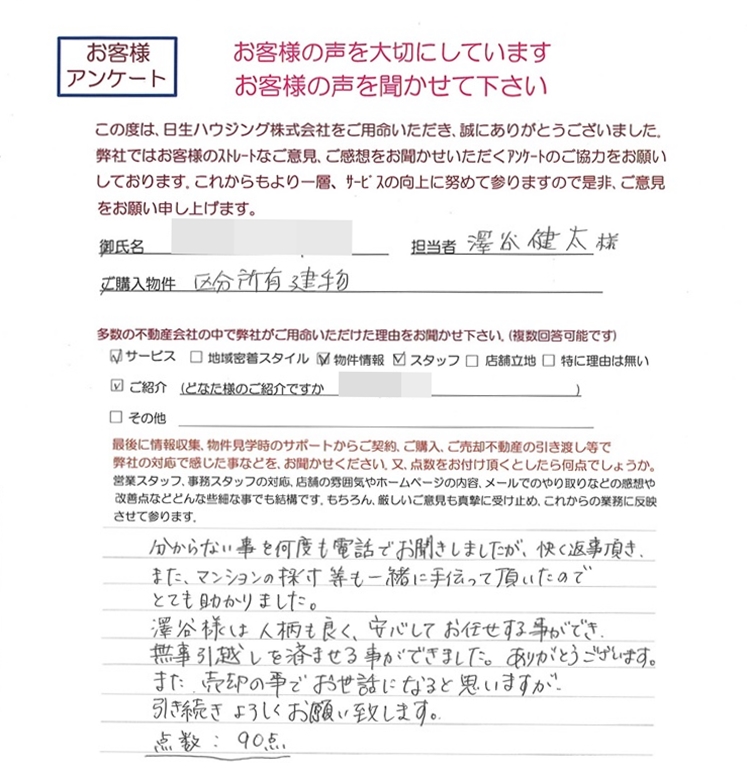 お客様
アンケート
お客様の声を大切にしています
お客様の声を聞かせて下さい
この度は、日生ハウジング株式会社をご用命いただき、誠にありがとうございました。
弊社ではお客様のｽﾄﾚｰﾄなご意見、ご感想をお聞かせいただくｱﾝｹｰﾄのご協力をお願い
しております。これからもより一層、ｻｰﾋﾞｽの向上に努めて参りますので是非、ご意見
をお願い申し上げます。
御氏名 担当者 澤谷健太様
ご購入物件 区分所有建物
多数の不動産会社の中で弊社がご用命いただけた理由をお聞かせ下さい。(複数回答可能です)
☑サービス □地域密着スタイル ☑物件情報 ☑スタッフ □店舗立地 □特に理由は無い
☑ご紹介 (どなた様のご紹介ですか )
□その他
最後に情報収集、物件見学時のサポートからご契約、ご購入、ご売却不動産の引き渡し等で
弊社の対応で感じた事などを、お聞かせください。又、点数をお付け頂くとしたら何点でしょうか。
営業スタッフ、事務スタッフの対応、店舗の雰囲気やホームページの内容、メールでのやり取りなどの感想や
改善点などどんな些細な事でも結構です。もちろん、厳しいご意見も真摯に受け止め、これからの業務に反映
させて参ります。
分からない事を何度も電話でお聞きしましたが、快く返事頂き、
また、マンションの採寸等も一緒に手伝って頂いたので
とても助かりました。
澤谷様は人柄も良く、安心してお任せする事ができ、
無事引越しを済ませる事ができました。ありがとうございます。
また、売却の事でお世話になると思いますが、
引き続きよろしくお願い致します。
点数：90点